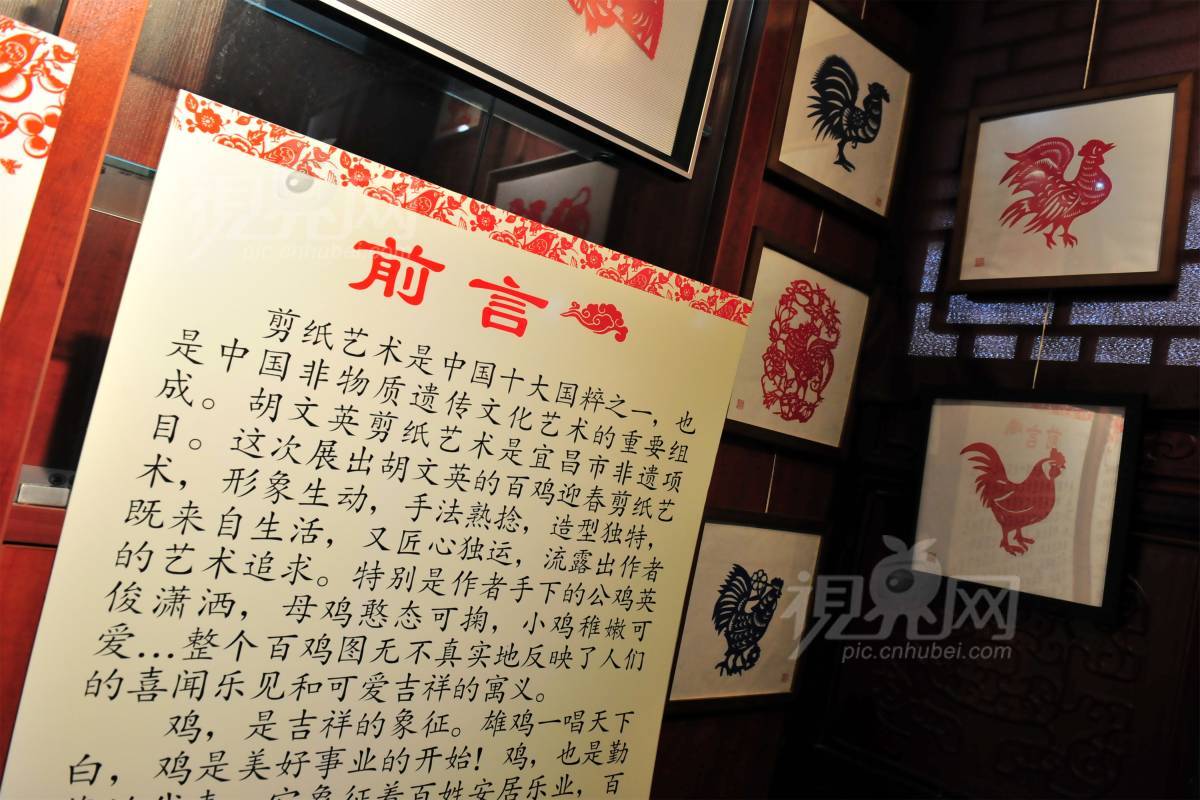 前言
剪纸艺术是中国十大国粹之一，也
是中国非物质遗传文化艺术的重要组
成。胡文英剪纸艺术是宜昌市非遗项
目。这次展出胡文英的百鸡迎春剪纸艺
术，形象生动，手法熟捻，造型独特，
既来自生活，又匠心独运，流露出作者
的艺术追求。特别是作者手下的公鸡英
俊潇洒，母鸡憨态可掬，小鸡稚嫩可
爱…整个百鸡图无不真实地反映了人们
的喜闻乐见和可爱吉祥的寓义。
鸡，是吉祥的象征。雄鸡一唱天下
白，鸡是美好事业的开始！鸡，也是勤
它象征着百姓安居乐业，百
视界网
pic.cnhubei.com
视界网
pic.cnhubei.com